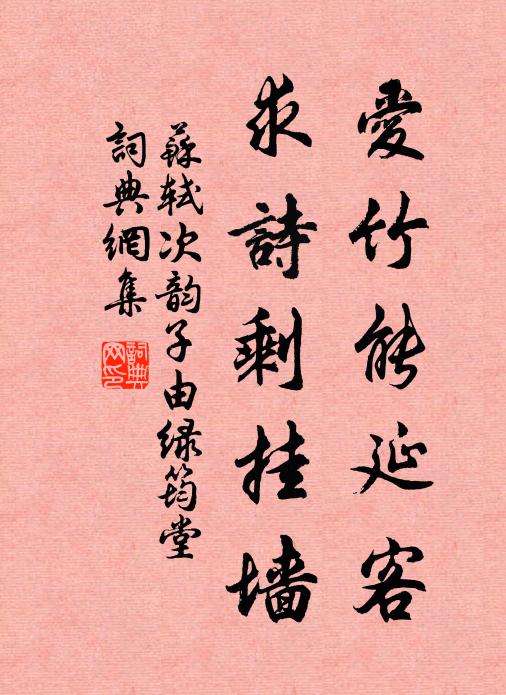 愛竹能延客
求詩剩挂墙
蘇軾次韵子由緑筠堂
詞典網集
詞典网印